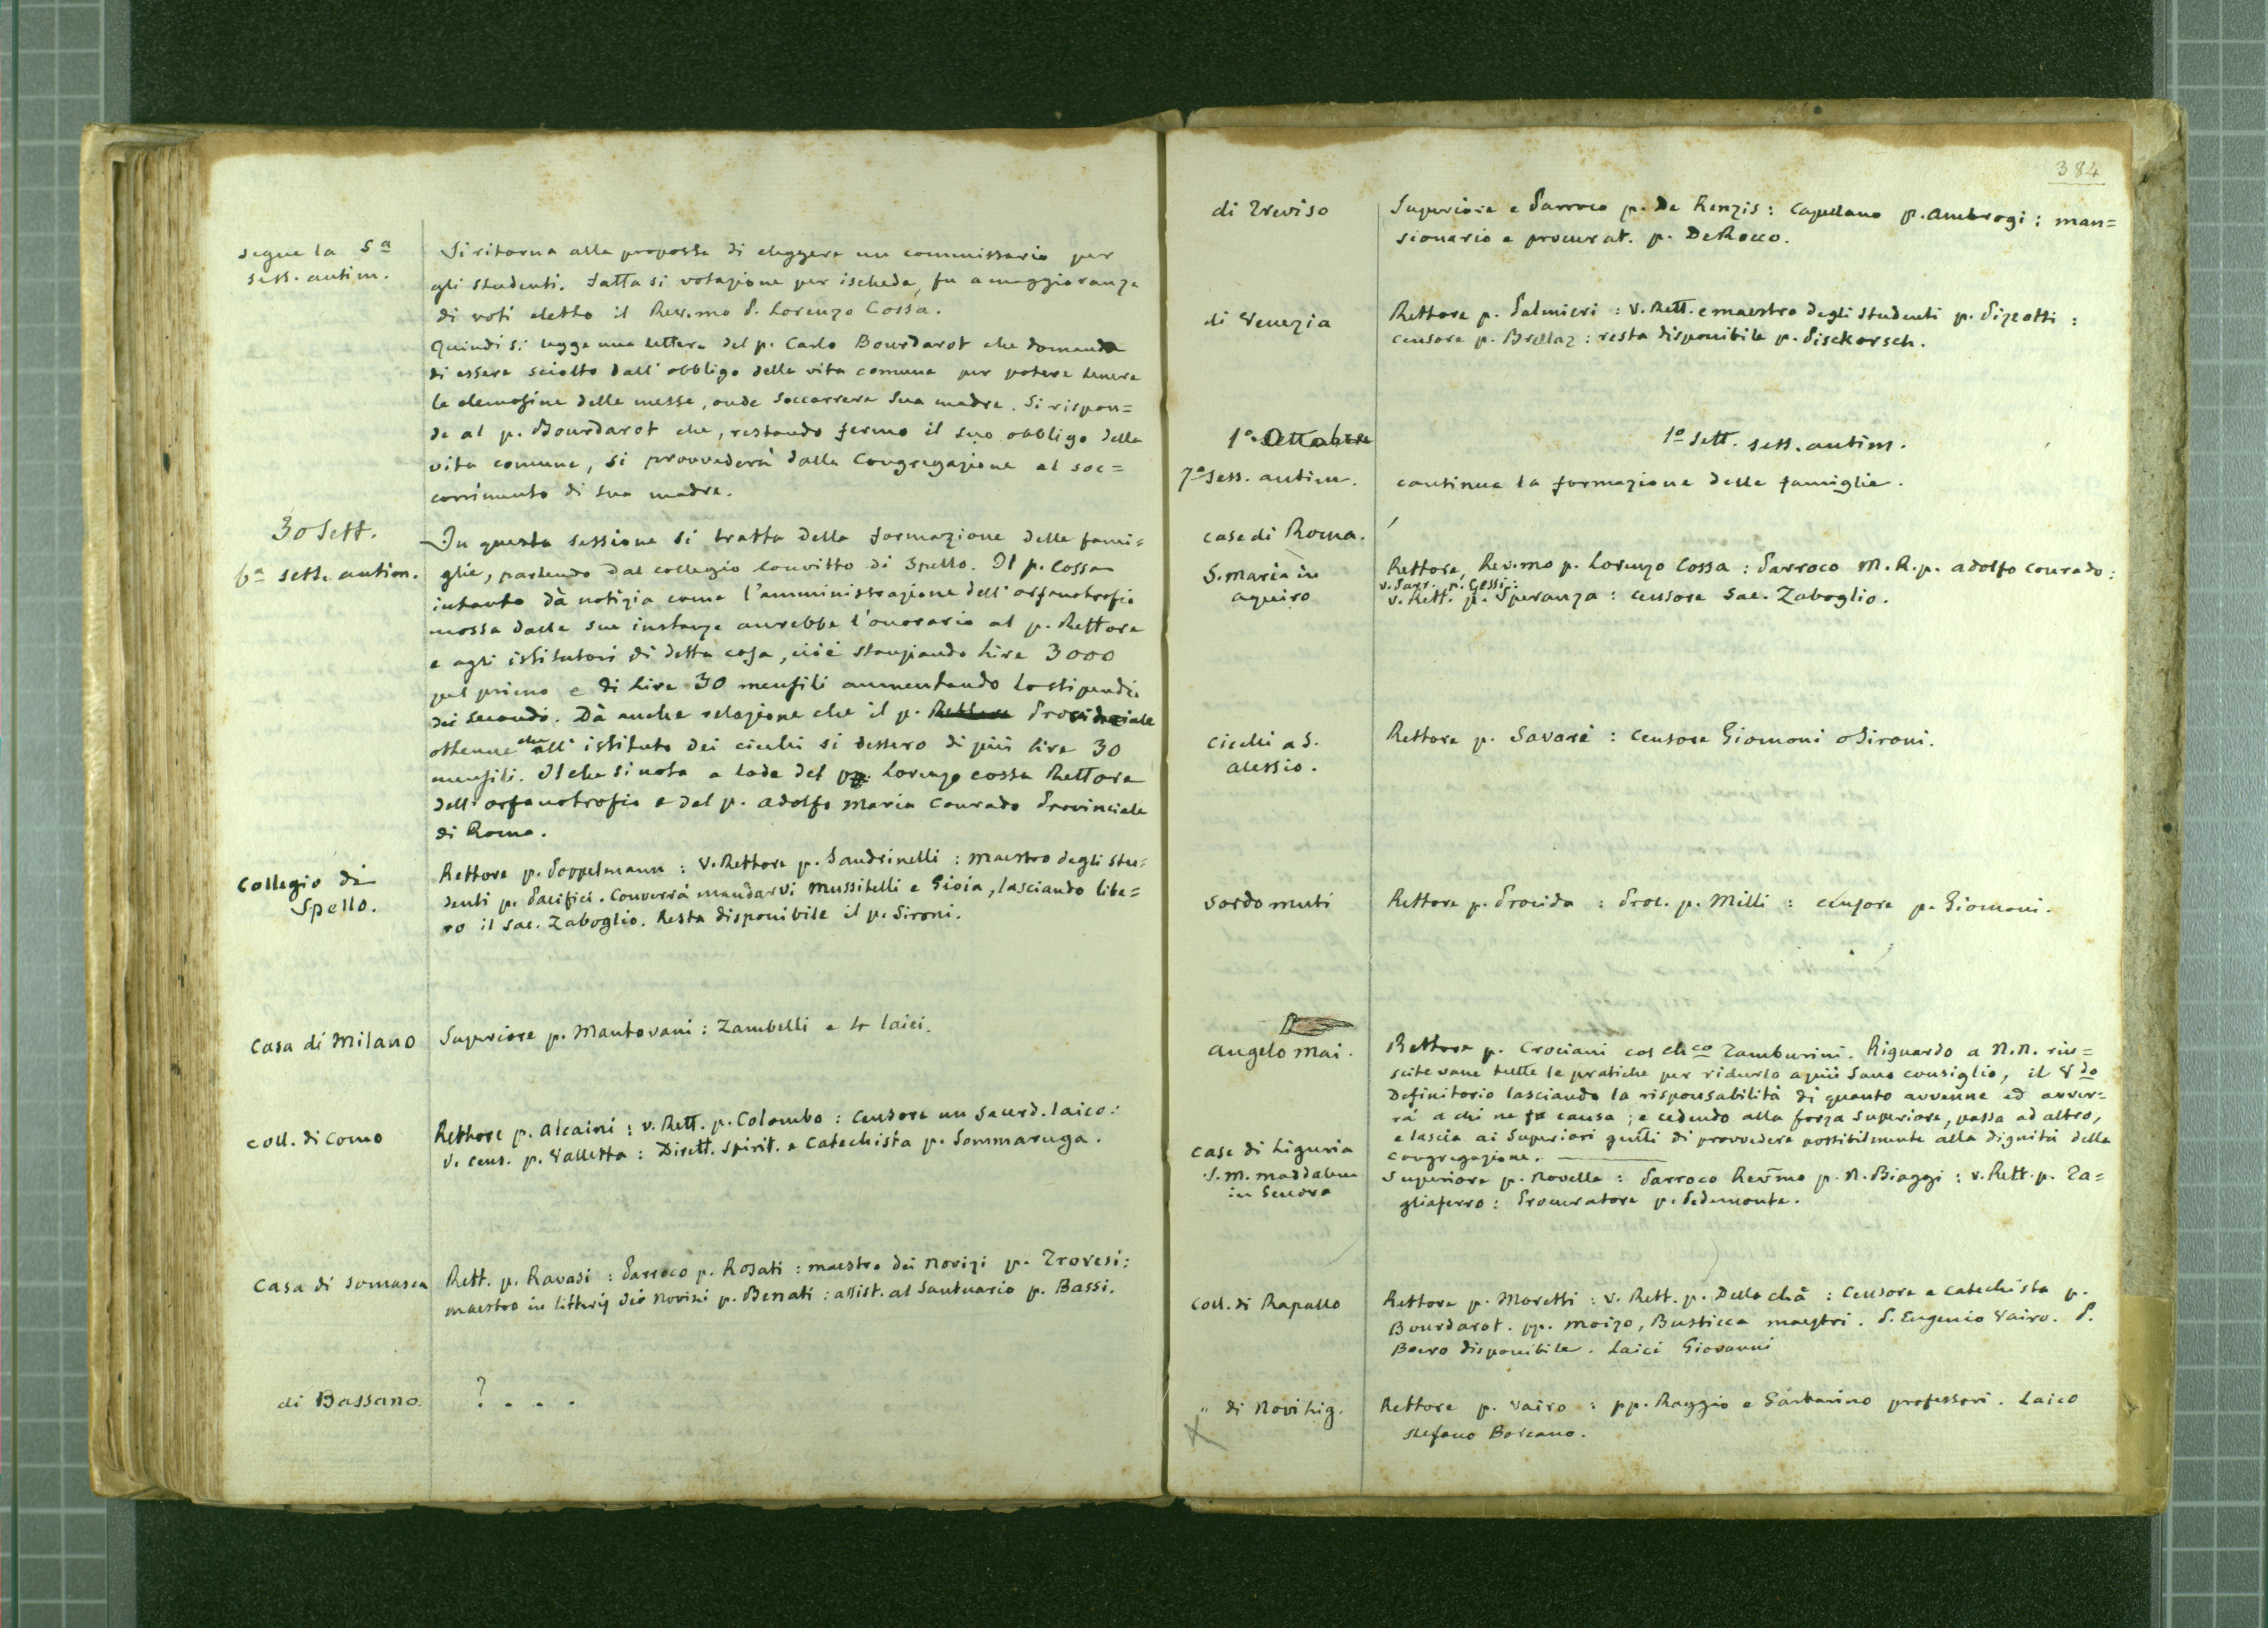 segue la 5ª
sess. antim.
Si ritorna alla proposta di eleggere un commissario per
gli studenti. Fattasi votazione per ischeda, fu a maggioranza
di voti eletto il Rev.mo P. Lorenzo Cossa.
Quindi si legge una lettera del p. Carlo Bourdarot che domanda
di essere sciolto dall'obbligo della vita comune per potere tenere
le elemosine delle messe, onde soccorrere sua madre. Si rispon=
de al p. Bourdarot che, restando fermo il suo obbligo della
vita comune, si provvederà dalla Congregazione al soc=
corrimento di sua madre.
30 Sett.
6ª sess. antim.
In questa sessione si tratta della formazione delle fami=
glie, partendo dal collegio convitto di Spello. Il p. Cossa
intanto dà notizia come l'amministrazione dell'orfanotrofio
mossa dalle sue instanze aurebbe l'onorario al p. Rettore
e agli istitutori di detta casa, cioè stanziando lire 3000
pel primo e di lire 30 mensili aumentando lo stipendio
dei secondi. Dà anche relazione che il p. Rettore Provinciale
ottenne che all'istituto dei ciechi si dessero di più lire 30
mensili. Il che si nota a lode del p. Lorenzo Cossa Rettore
dell'orfanotrofio e del p. Adolfo Maria Conrado Provinciale
di Roma.
Collegio di
Spello.
Rettore p. Poppelmann : V. Rettore p. Sandrinelli : maestro degli stu=
denti p. Pacifici. Converrà mandarvi Mussitelli e Gioia, lasciando libe=
ro il Sac. Zaboglio. Resta disponibile il p. Sironi.
Casa di Milano
Superiore p. Mantovani : Zambelli e 4 laici.
Coll. di Como
Rettore p. Alcaini : v. Rett. p. Colombo : Censore un sacerd. laico :
v. cens. p. Valletta : Dirett. spirit. e Catechista p. Sommaruga.
Casa di Somasca
Rett. p. Ravasi : Parroco p. Rosati : maestro dei Novizi p. Trovesi :
maestro in litteris dei Novizi p. Benati : assist. al Santuario p. Bassi.
di Bassano.
? . . .
384
di Treviso
Superiore e Parroco p. De Renzis : Capellano p. Ambrogi : man=
sionario e procurat. p. De Rocco.
di Venezia
Rettore p. Palmieri : V. Rett. e maestro degli studenti p. Pizzotti :
censore p. Brellaz : resta disponibile p. Pisckorsch.
1º Ottobre
7ª sess. antim.
1º sett. sess. antim.
continua la formazione delle famiglie.
case di Roma.
S. Maria in
aquiro
Rettore, Rev.mo p. Lorenzo Cossa : Parroco M. R. p. Adolfo Conrado :
v. Parr. p. Gessi :
v. Rett. p. Speranza : censore Sac. Zaboglio.
Ciechi a S.
Alessio.
Rettore p. Savarè : Censore Giomoni o Sironi.
Sordo muti
Rettore p. Procida : Proc. p. Milli : censore p. Giomoni.
Angelo Mai.
Rettore p. Crociani col chco Tamburini. Riguardo a N.N. riu=
scite vane tutte le pratiche per ridurlo a più sano consiglio, il Vdo
Definitorio lasciando la risponsabilità di quanto avvenne ed avver=
rà a chi ne fu causa ; e cedendo alla forza superiore, passa ad altro,
e lascia ai Superiori gnlli di provvedere possibilmente alla dignità della
Congregazione.
case di Liguria
S. M. Maddalena
in Genova
Superiore p. Novella : Parroco Rev̄mo p. N. Biaggi : v. Rett. p. Ta=
gliaferro : Procuratore p. Pedemonte.
Coll. di Rapallo
Rettore p. Moretti : v. Rett. p. Della chà : Censore e catechista p.
Bourdarot. pp. Moizo, Busticca maestri. P. Eugenio Vairo. P.
Boero disponibile. Laici Giovanni
" di Novi Lig.
Rettore p. Vairo : pp. Raggio e Garbarino professori. Laico
Stefano Borcano.